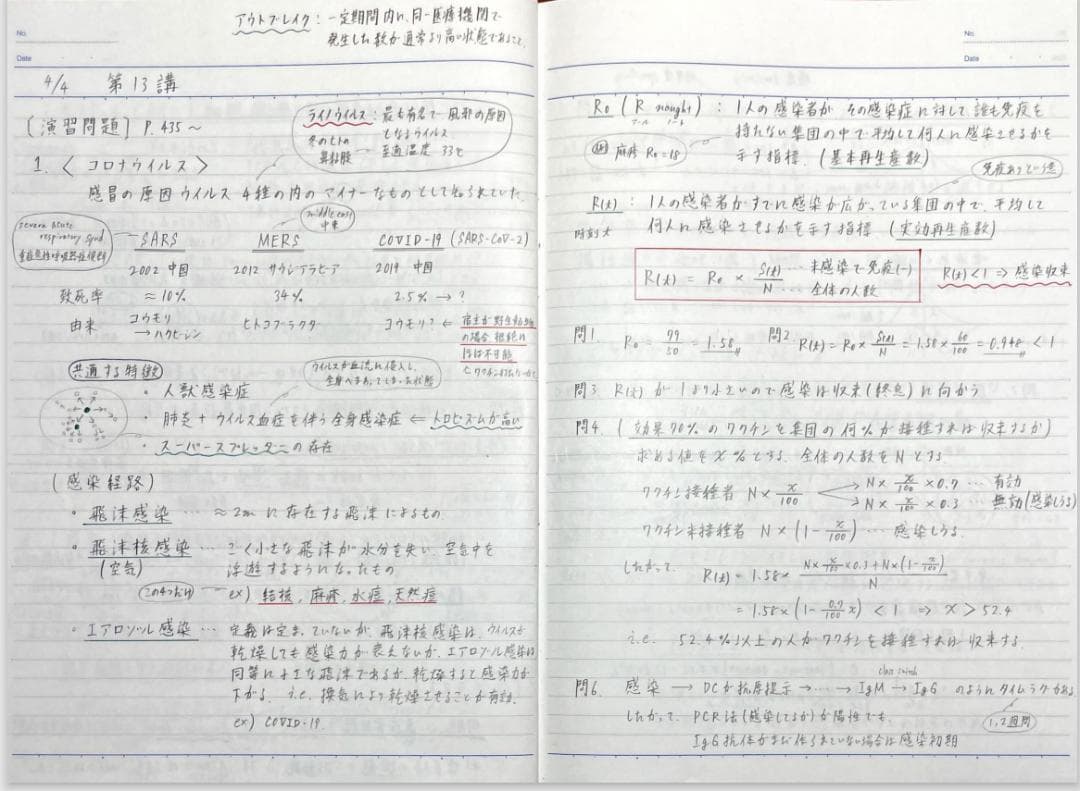 アウトブレイク：一定期間内に、同一医療機関で
発生した数が通常より高い状態であること。
No.
Date
4/4 第13講
[演習問題] P.435～
ライノウイルス：最も有名で風邪の原因
となるウイルス
冬のヒトの
鼻粘膜 至適温度 33℃
1. 〈コロナウイルス〉
感冒の原因ウイルス4種の内のマイナーなものとして知られていた。
severe acute
respiratory synd
重症急性呼吸器症候群
middle east
中東
SARS MERS COVID-19 (SARS-CoV-2)
2002 中国 2012 サウジアラビア 2019 中国
致死率 ≈10% 34% 2.5% → ?
由来 コウモリ
→ハクビシン
ヒトコブラクダ コウモリ？ ⇐ 宿主が野生動物
の場合、根絶は
ほぼ不可能
共通する特徴
ウイルスが血流に侵入し、
全身へまわってしまった状態
・人獣感染症
・肺炎+ウイルス血症を伴う全身感染症 ⇐ トロピズムが高い
・スーパースプレッダーの存在
(感染経路)
・飛沫感染 … ≈2mに存在する飛沫によるもの。
・飛沫核感染 … ごく小さな飛沫が水分を失い、空気中を
(空気) 浮遊するようになったもの
この4つだけ ex) 結核、麻疹、水痘、天然痘
・エアロゾル感染 … 定義は定まっていないが、飛沫核感染は、ウイルスが
乾燥しても感染力が衰えないが、エアロゾル感染は
同等に小さな飛沫であるが、乾燥すると感染力が
下がる。i.e. 換気により乾燥させることが有効。
ex) COVID-19.
No.
Date
R₀ (R nought)：1人の感染者が、その感染症に対して誰も免疫を
アール ノート 持たない集団の中で、平均して何人に感染させるかを
例 麻疹 R₀=18 示す指標。(基本再生産数)
免疫ありという意
R(t)：1人の感染者がすでに感染が広がっている集団の中で、平均して
時刻t 何人に感染させるかを示す指標 (実効再生産数)
R(t) = R₀ × S(t)/N … 未感染で免疫(-)
… 全体の人数
R(t)<1 ⇒ 感染収束
問1. R₀ = 79/50 = 1.58 問2. R(t) = R₀ × S(t)/N = 1.58 × 60/100 = 0.948 < 1
問3. R(t)が1より小さいので感染は収束(終息)に向かう
問4. (効果70%のワクチンを集団の何%が接種すれば収束するか)
求める値をx%とする。全体の人数をNとする。
ワクチン接種者 N × x/100 → N × x/100 × 0.7 … 有効
→ N × x/100 × 0.3 … 無効(感染しうる)
ワクチン未接種者 N × (1 - x/100) … 感染しうる
したがって、R(t) = 1.58 × (N × x/100 × 0.3 + N × (1 - x/100))/N
= 1.58 × (1 - 0.7/100 x) < 1 ⇒ x > 52.4
i.e. 52.4%以上の人がワクチンを接種すれば収束する。
class switch
問6. 感染 → DCが抗原提示 → … → IgM → IgG のようにタイムラグがある
したがって、PCR法(感染してるか)が陽性でも、 1,2週間
IgG抗体がまだ作られていない場合は感染初期